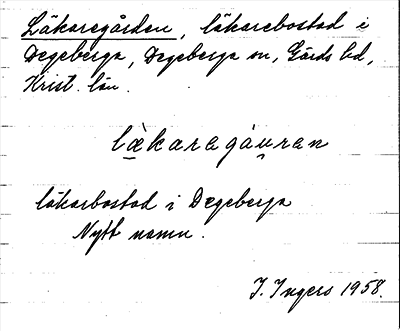 Läkaregården, läkarebostad i
Degeberga, Degeberga sn, Gärds hd,
Krist. län.
lä̀karagáu̯ran
läkarbostad i Degeberga
Nytt namn.
I. Ingers 1958.